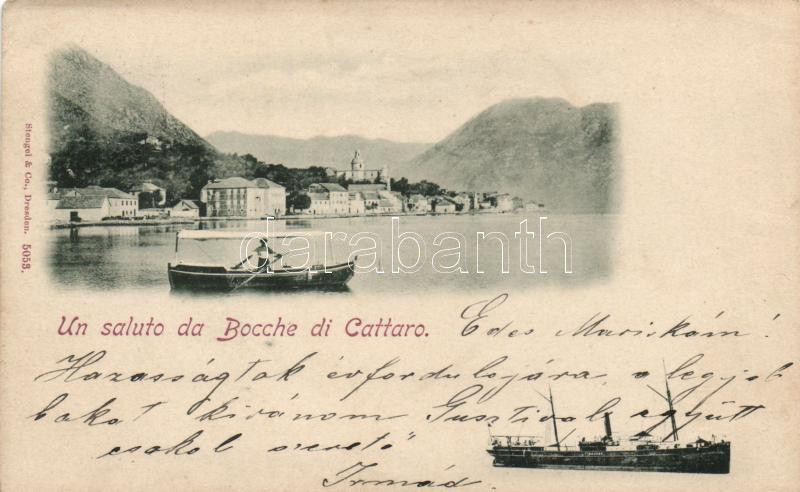 Stengel & Co., Dresden. 5053.
darabanth
Un saluto da Bocche di Cattaro.
Édes Mariskám!
Házasságtok évfordulojára, a legjob
bakat kivánom Gusztival együtt
csokol szerető
Irmád